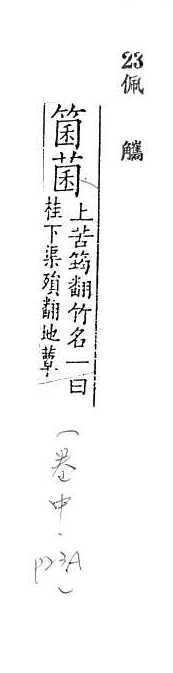 23佩觿
箘菌上苦筠翻竹名一曰
桂下渠殞翻地蕈
(卷中.
p23A)